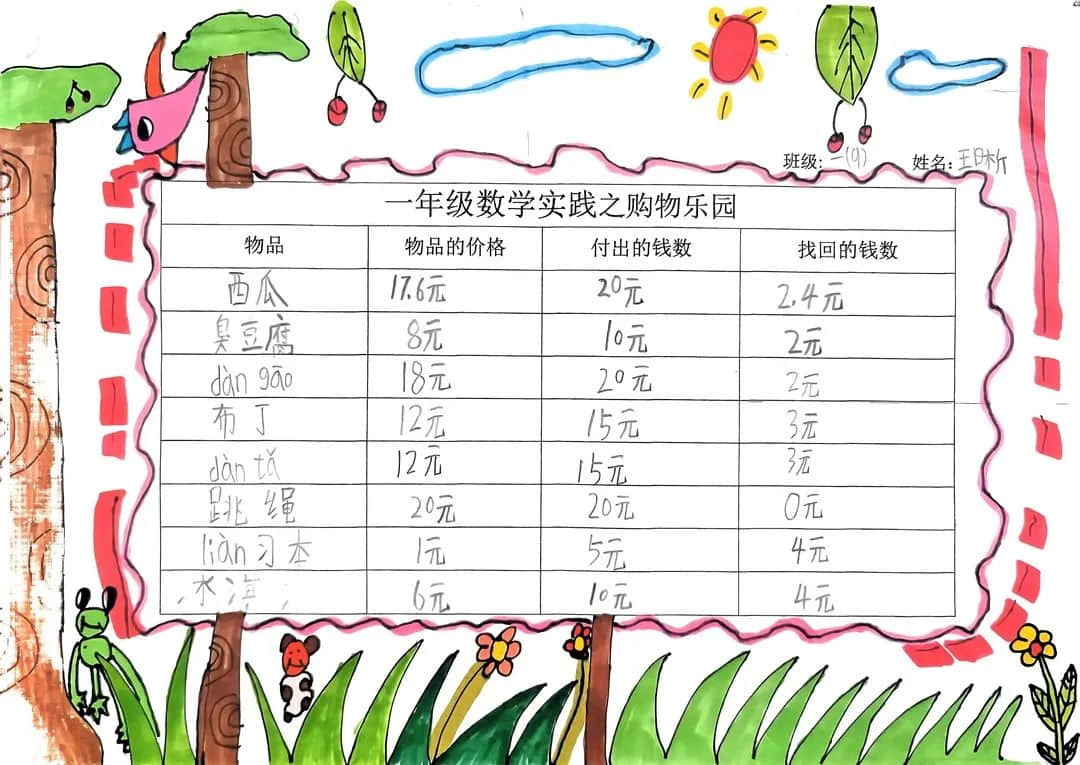 班级: 一(9) 姓名: 王日析
一年级数学实践之购物乐园
物品 物品的价格 付出的钱数 找回的钱数
西瓜 17.6元 20元 2.4元
臭豆腐 8元 10元 2元
dàn gāo 18元 20元 2元
布丁 12元 15元 3元
dàn tǎ 12元 15元 3元
跳绳 20元 20元 0元
liàn习本 1元 5元 4元
6元 10元 4元